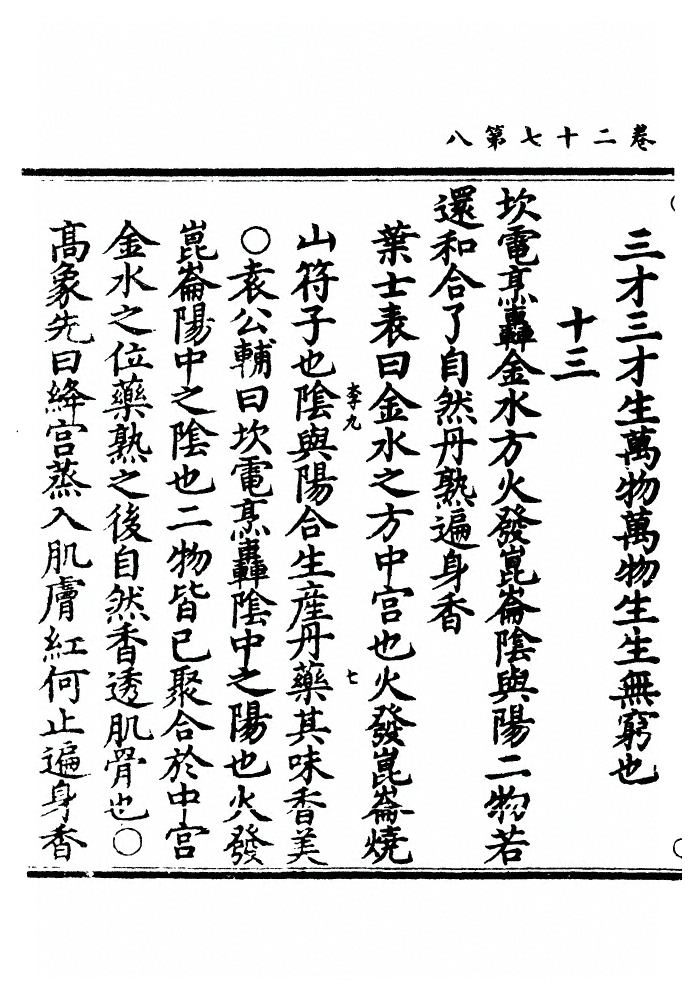 卷二十七第八
三才三才生萬物萬物生生無窮也
十三
坎電烹轟金水方火發崑崙陰與陽二物若
還和合了自然丹熟遍身香
葉士表曰金水之方中宮也火發崑崙燒
山符子也陰與陽合生產丹藥其味香美
李九
七
○袁公輔曰坎電烹轟陰中之陽也火發
崑崙陽中之陰也二物皆已聚合於中宮
金水之位藥熟之後自然香透肌骨也○
高象先曰絳宮蒸入肌膚紅何止遍身香